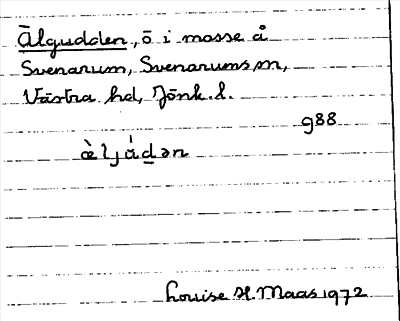 Älgudden, ö i mosse å
Svenarum, Svenarums sn,
Västra hd, Jönk. l.
988
Louise H. Maas 1972